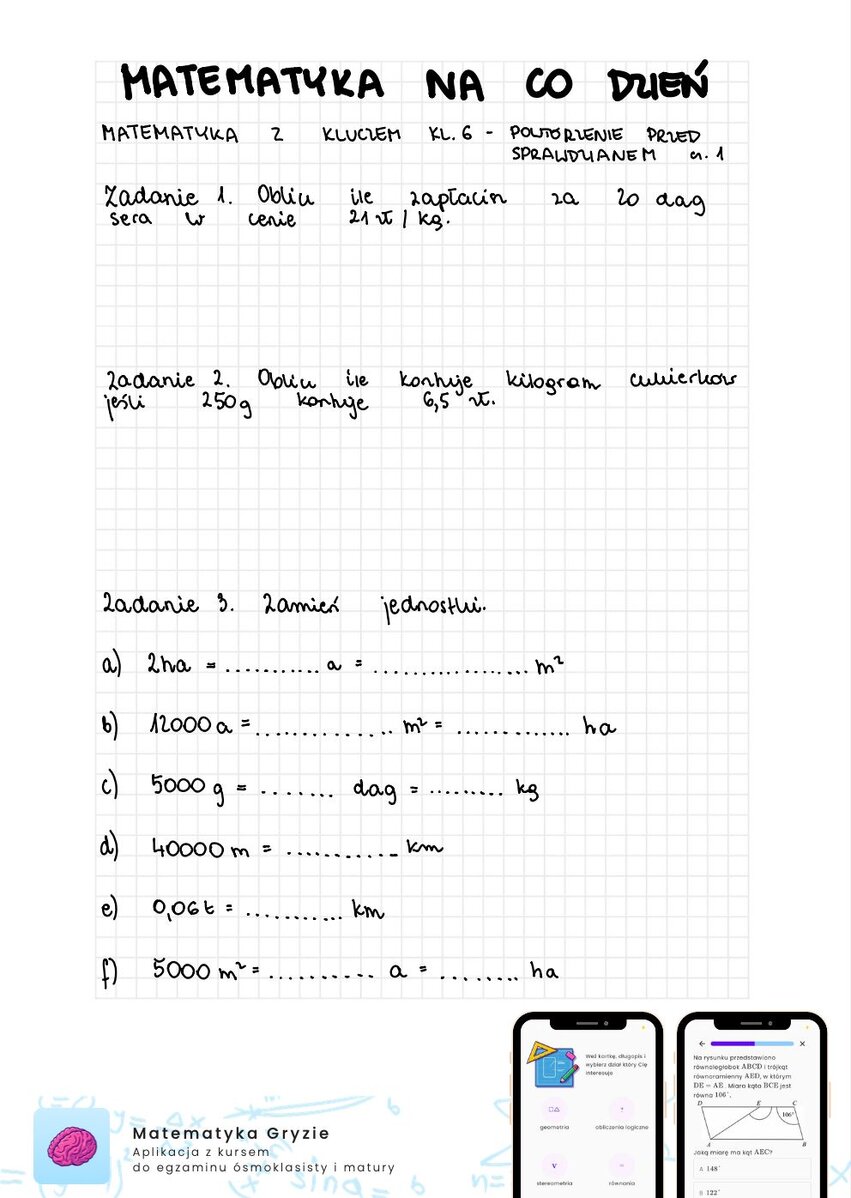 MATEMATYKA NA CO DZIEŃ
MATEMATYKA Z KLUCZEM KL. 6 - POWTÓRZENIE PRZED
SPRAWDZIANEM cz. 1
Zadanie 1. Oblicz ile zapłacisz za 20 dag
sera w cenie 21 zł / kg.
Zadanie 2. Oblicz ile kosztuje kilogram cukierków
jeśli 250g kosztuje 6,5 zł.
Zadanie 3. Zamień jednostki.
a) 2ha = ........... a = .................. m²
b) 12000 a = .............. m² = ............. ha
c) 5000 g = ....... dag = ......... kg
d) 40000 m = ........... km
e) 0,06 t = ........... km
f) 5000 m² = ........... a = ........ ha
Weź kartkę, długopis i
wybierz dział który Cię
interesuje
geometria
obliczenia logiczne
stereometria
równania
Na rysunku przedstawiono
równoległobok ABCD i trójkąt
równoramienny AED, w którym
DE = AE. Miara kąta BCE jest
równa 106°.
D E C
106°
A B
Jaką miarę ma kąt AEC?
A 148°
B 122°
Matematyka Gryzie
Aplikacja z kursem
do egzaminu ósmoklasisty i matury